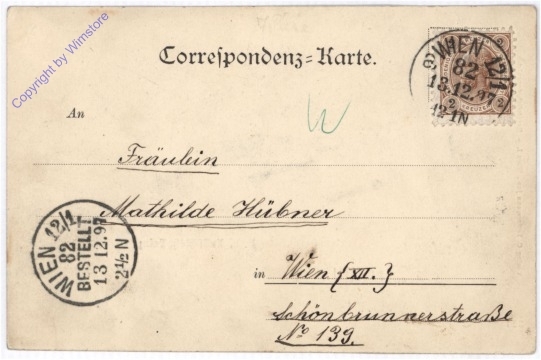 Copyright by Wimstore
Correspondenz-Karte.
WIEN 12/1
82
13.12.97
12-1N
2 KREUZER 2
An
W
Fräulein
Mathilde Hübner
in Wien {XII.}
Schönbrunnerstraße
No 139.
WIEN 12/1
82
BESTELLT
13 12.97
2½N